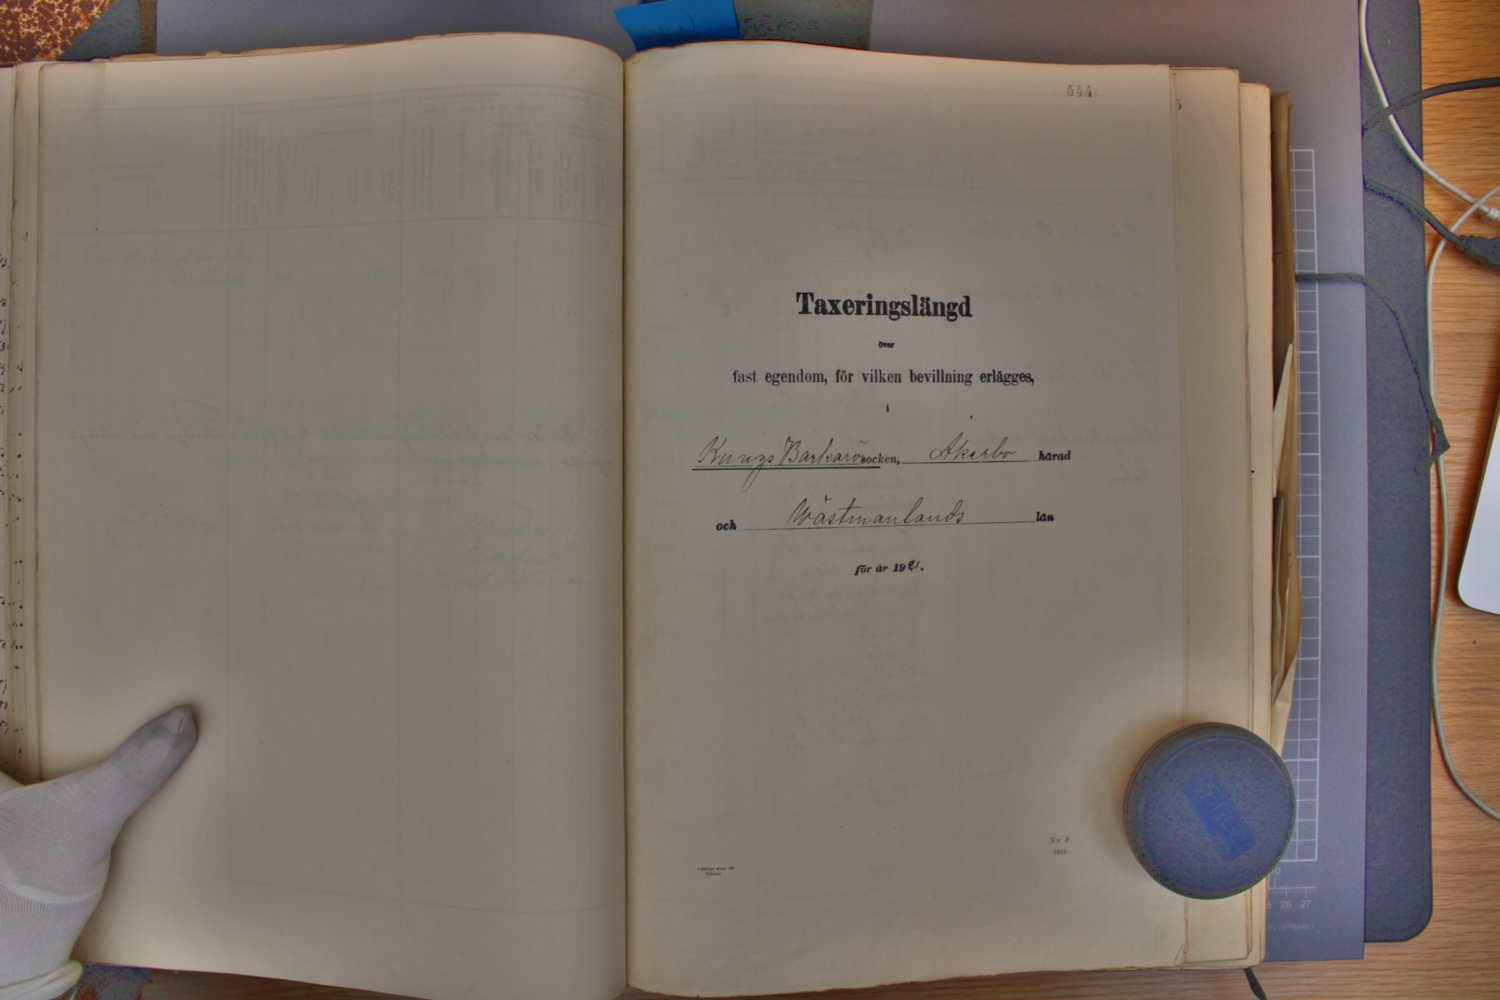 544.
Taxeringslängd
över
fast egendom, för vilken bevillning erlägges,
i
Kungs Barkarö socken, Åkerbo härad
och Wästmanlands län
för år 1921.
N:r 2.
1919.
26 27
GERMANY